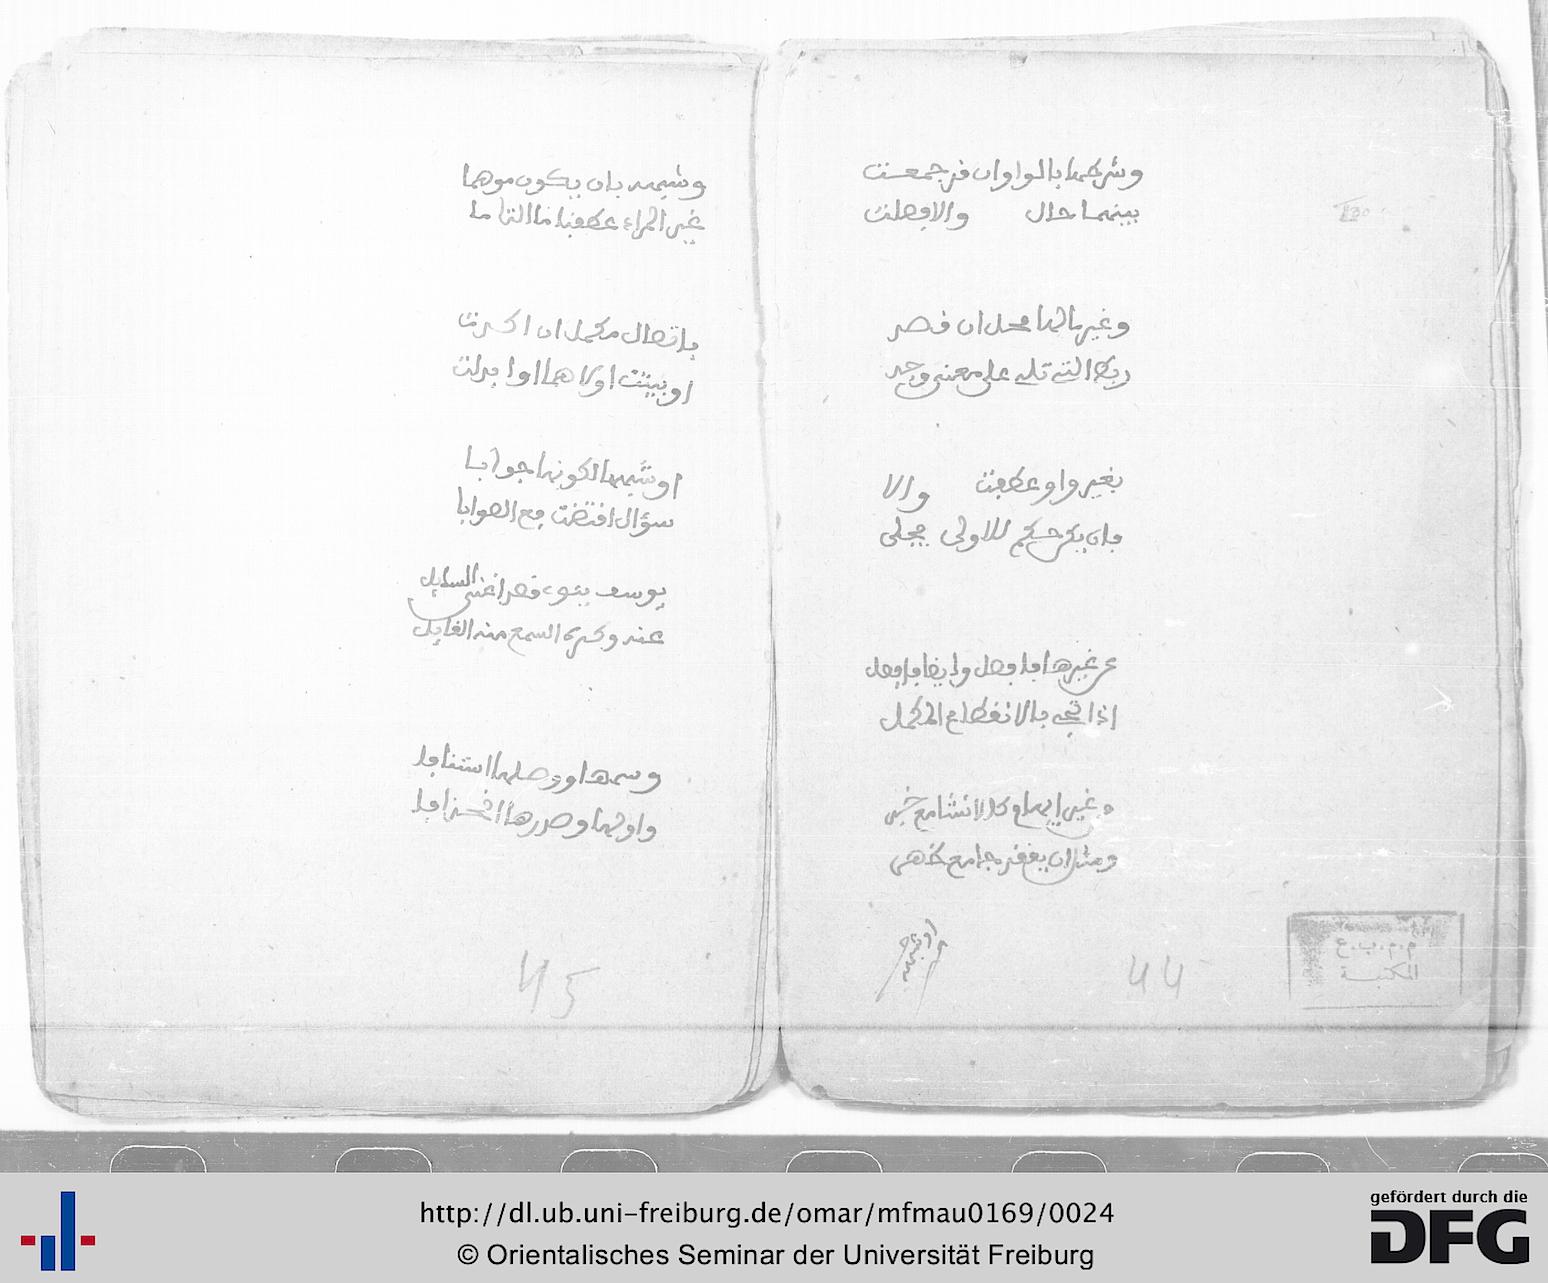 وشركها بالواو ان قد جمعت
بينهما حال والا فصلت
وغير ما لها محل ان قصد
ربط التي تليه على معنى وجد
بغير واو عطفت والا
فان يكن حكم للاولى يجلى
عن غيرها فافصل وايضا فافصل
اذا تجي بالانقطاع المكمل
وغير ايهام كالانشا مع خبر
ومثل ان يفقد جامع ظهر
او شبهه
44
م.م.ب.ع
المكتبة
وشبهه بان يكون موهما
غير المراد عطفنا
باتصال مكمل ان اكدت
او بينت اولاهما او ابدلت
او شبهها لكونها جوابا
سؤال اقتضت مع الصوابا
السايل
عنه وكره السمع منه القايل
وسمها ووصلها استينافا
45
http://dl.ub.uni-freiburg.de/omar/mfmau0169/0024
© Orientalisches Seminar der Universität Freiburg
gefördert durch die
DFG